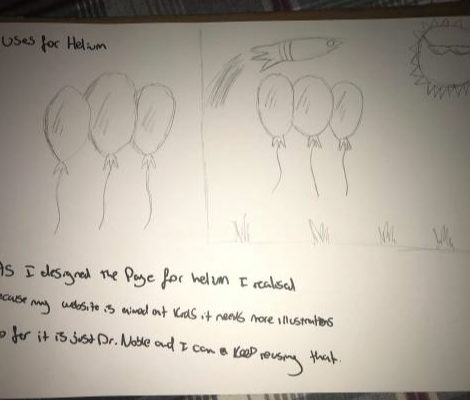 Uses for Helium
As I designed the Page for helium I realised
cause my website is aimed at Kids it needs more illustrations
fer it is just Dr. Noble and I can a Keep reusing that.